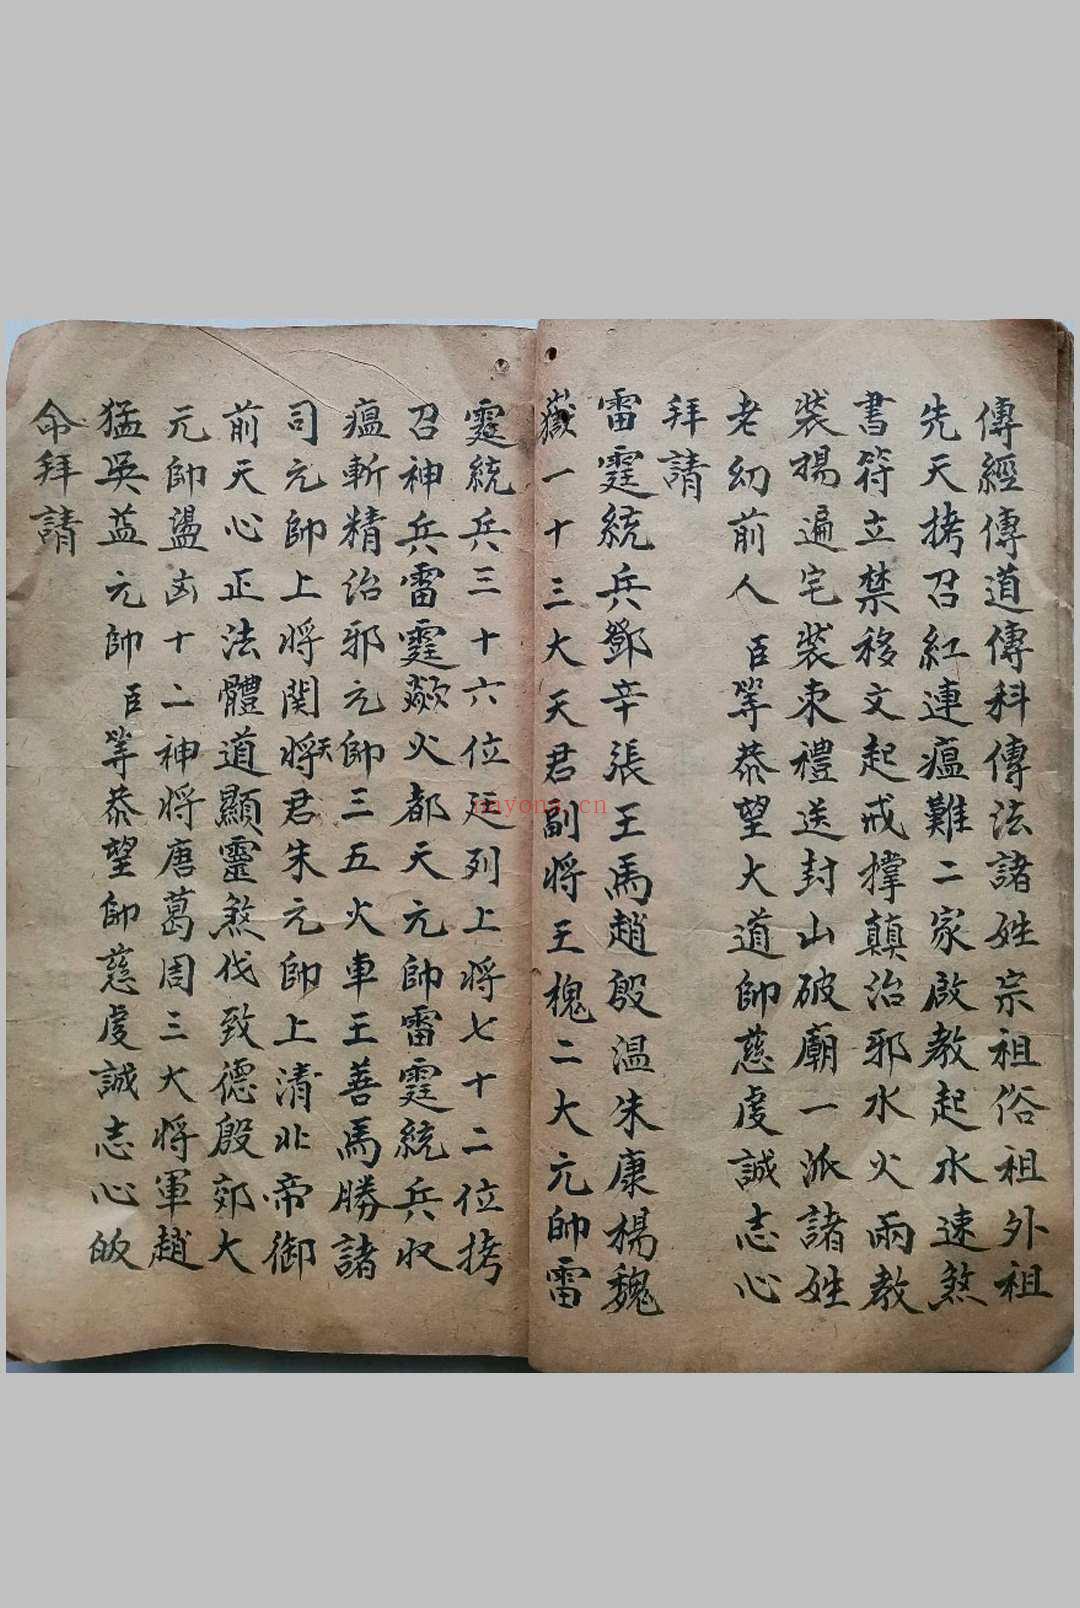 傳經傳道傳科傳法諸姓宗祖俗祖外祖
先天拷召紅連瘟難二家啟教起水速煞
書符立禁移文起戒撑顛治邪水火雨教
裝揚遍宅裝束禮送封山破廟一派諸姓
老幻前人 臣等恭望大道帥慈虔誠志心
拜請
雷霆統兵鄧辛張王馬趙殷温朱康楊魏
嶽一十三大天君副將王槐二大元帥雷
霆統兵三十六位廷列上将七十二位拷
召神兵雷霆歘火都天元帥雷霆統兵收
瘟斬精治邪元帥三五火車王善馬勝諸
司元帥上将関将天君朱元帥上清北帝御
前天心正法體道顯靈煞伐致德殷郊大
元帥盪凶十二神将唐葛周三大將軍趙
猛吳益元帥 臣等恭望帥慈虔誠志心皈
命拜請
nayona.cn